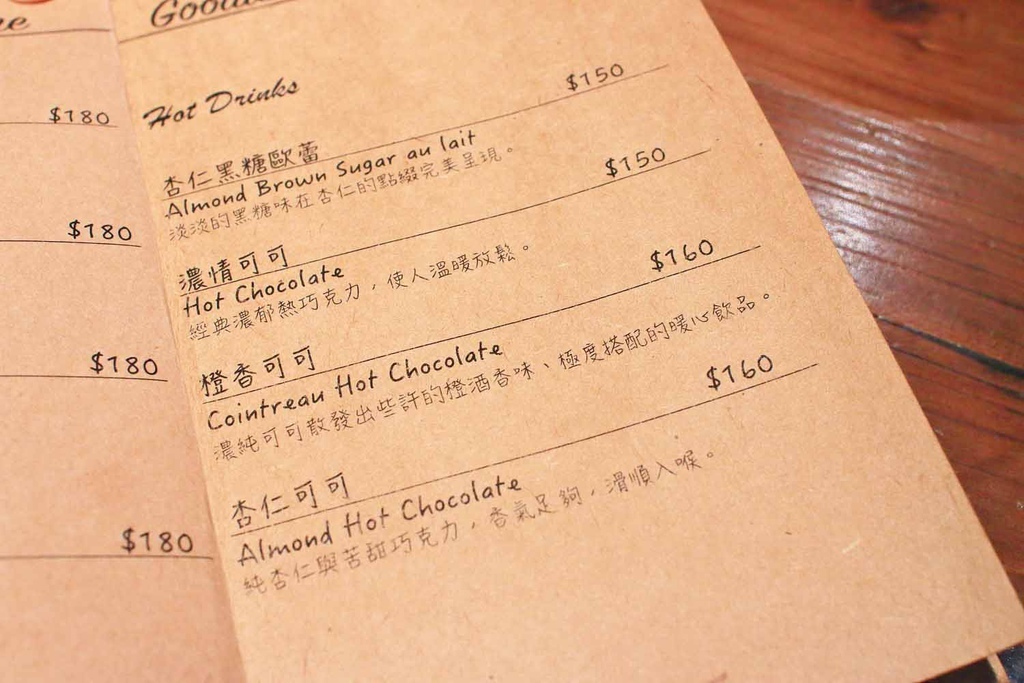 $180
$180
$180
$180
Hot Drinks
杏仁黑糖歐蕾 $150
Almond Brown Sugar au lait
淡淡的黑糖味在杏仁的點綴完美呈現。
濃情可可 $150
Hot Chocolate
經典濃郁熱巧克力，使人溫暖放鬆。
橙香可可 $160
Cointreau Hot Chocolate
濃純可可散發出些許的橙酒香味、極度搭配的暖心飲品。
杏仁可可 $160
Almond Hot Chocolate
純杏仁與苦甜巧克力，香氣足夠，滑順入喉。